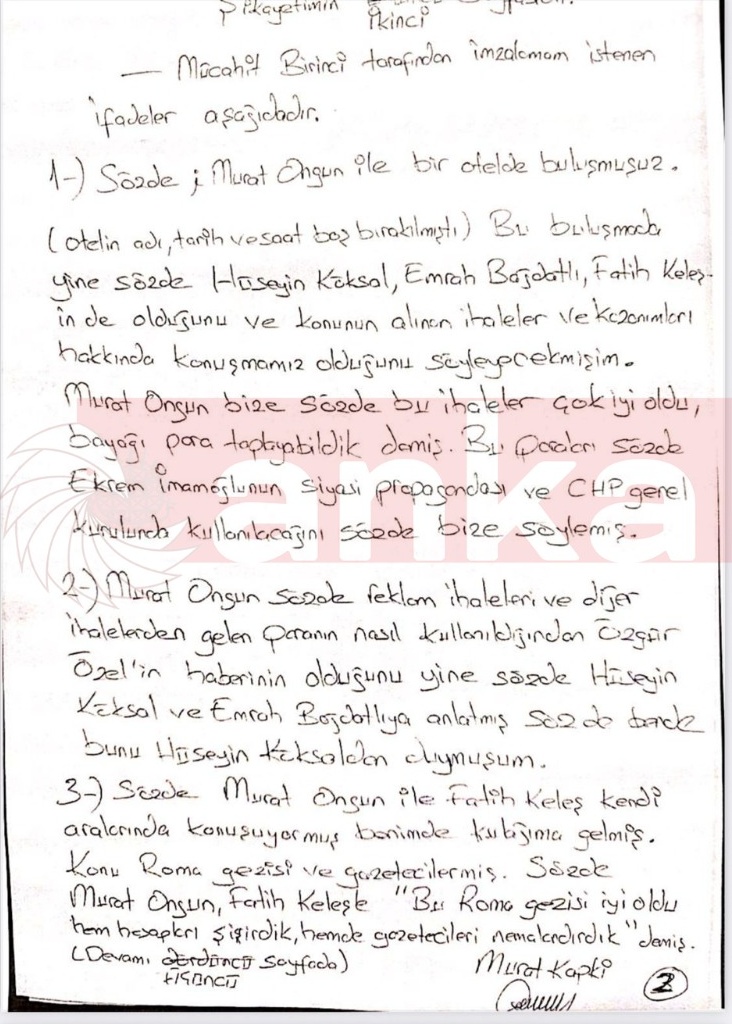 Şikayetimin
İkinci
— Mücahit Birinci tarafından imzalamam istenen
ifadeler aşağıdadır.
1-) Sözde ; Murat Ongun ile bir otelde buluşmuşuz.
(otelin adı, tarih ve saat boş bırakılmıştı) Bu buluşmada
yine sözde Hüseyin Köksal, Emrah Bağdatlı, Fatih Keleş-
in de olduğunu ve konunun alınan ihaleler ve kazanımları
hakkında konuşmamız olduğunu söyleyecekmişim.
Murat Ongun bize sözde bu ihaleler çok iyi oldu,
bayağı para toplayabildik demiş. Bu paraları sözde
Ekrem İmamoğlunun siyasi propagandası ve CHP genel
kurulunda kullanılacağını sözde bize söylemiş.
anka
2-) Murat Ongun sözde reklam ihaleleri ve diğer
ihalelerden gelen paranın nasıl kullanıldığından Özgür
Özel'in haberinin olduğunu yine sözde Hüseyin
Köksal ve Emrah Bağdatlıya anlatmış sözde bende
bunu Hüseyin Köksaldan duymuşum.
3-) Sözde Murat Ongun ile Fatih Keleş kendi
aralarında konuşuyormuş benimde kulağıma gelmiş.
Konu Roma gezisi ve gazetecilermiş. Sözde
Murat Ongun, Fatih Keleşle "Bu Roma gezisi iyi oldu
hem hesapları şişirdik, hemde gazetecileri nemalandırdık" demiş.
(Devamı dördüncü sayfada)
üçüncü
Murat Kapki
2